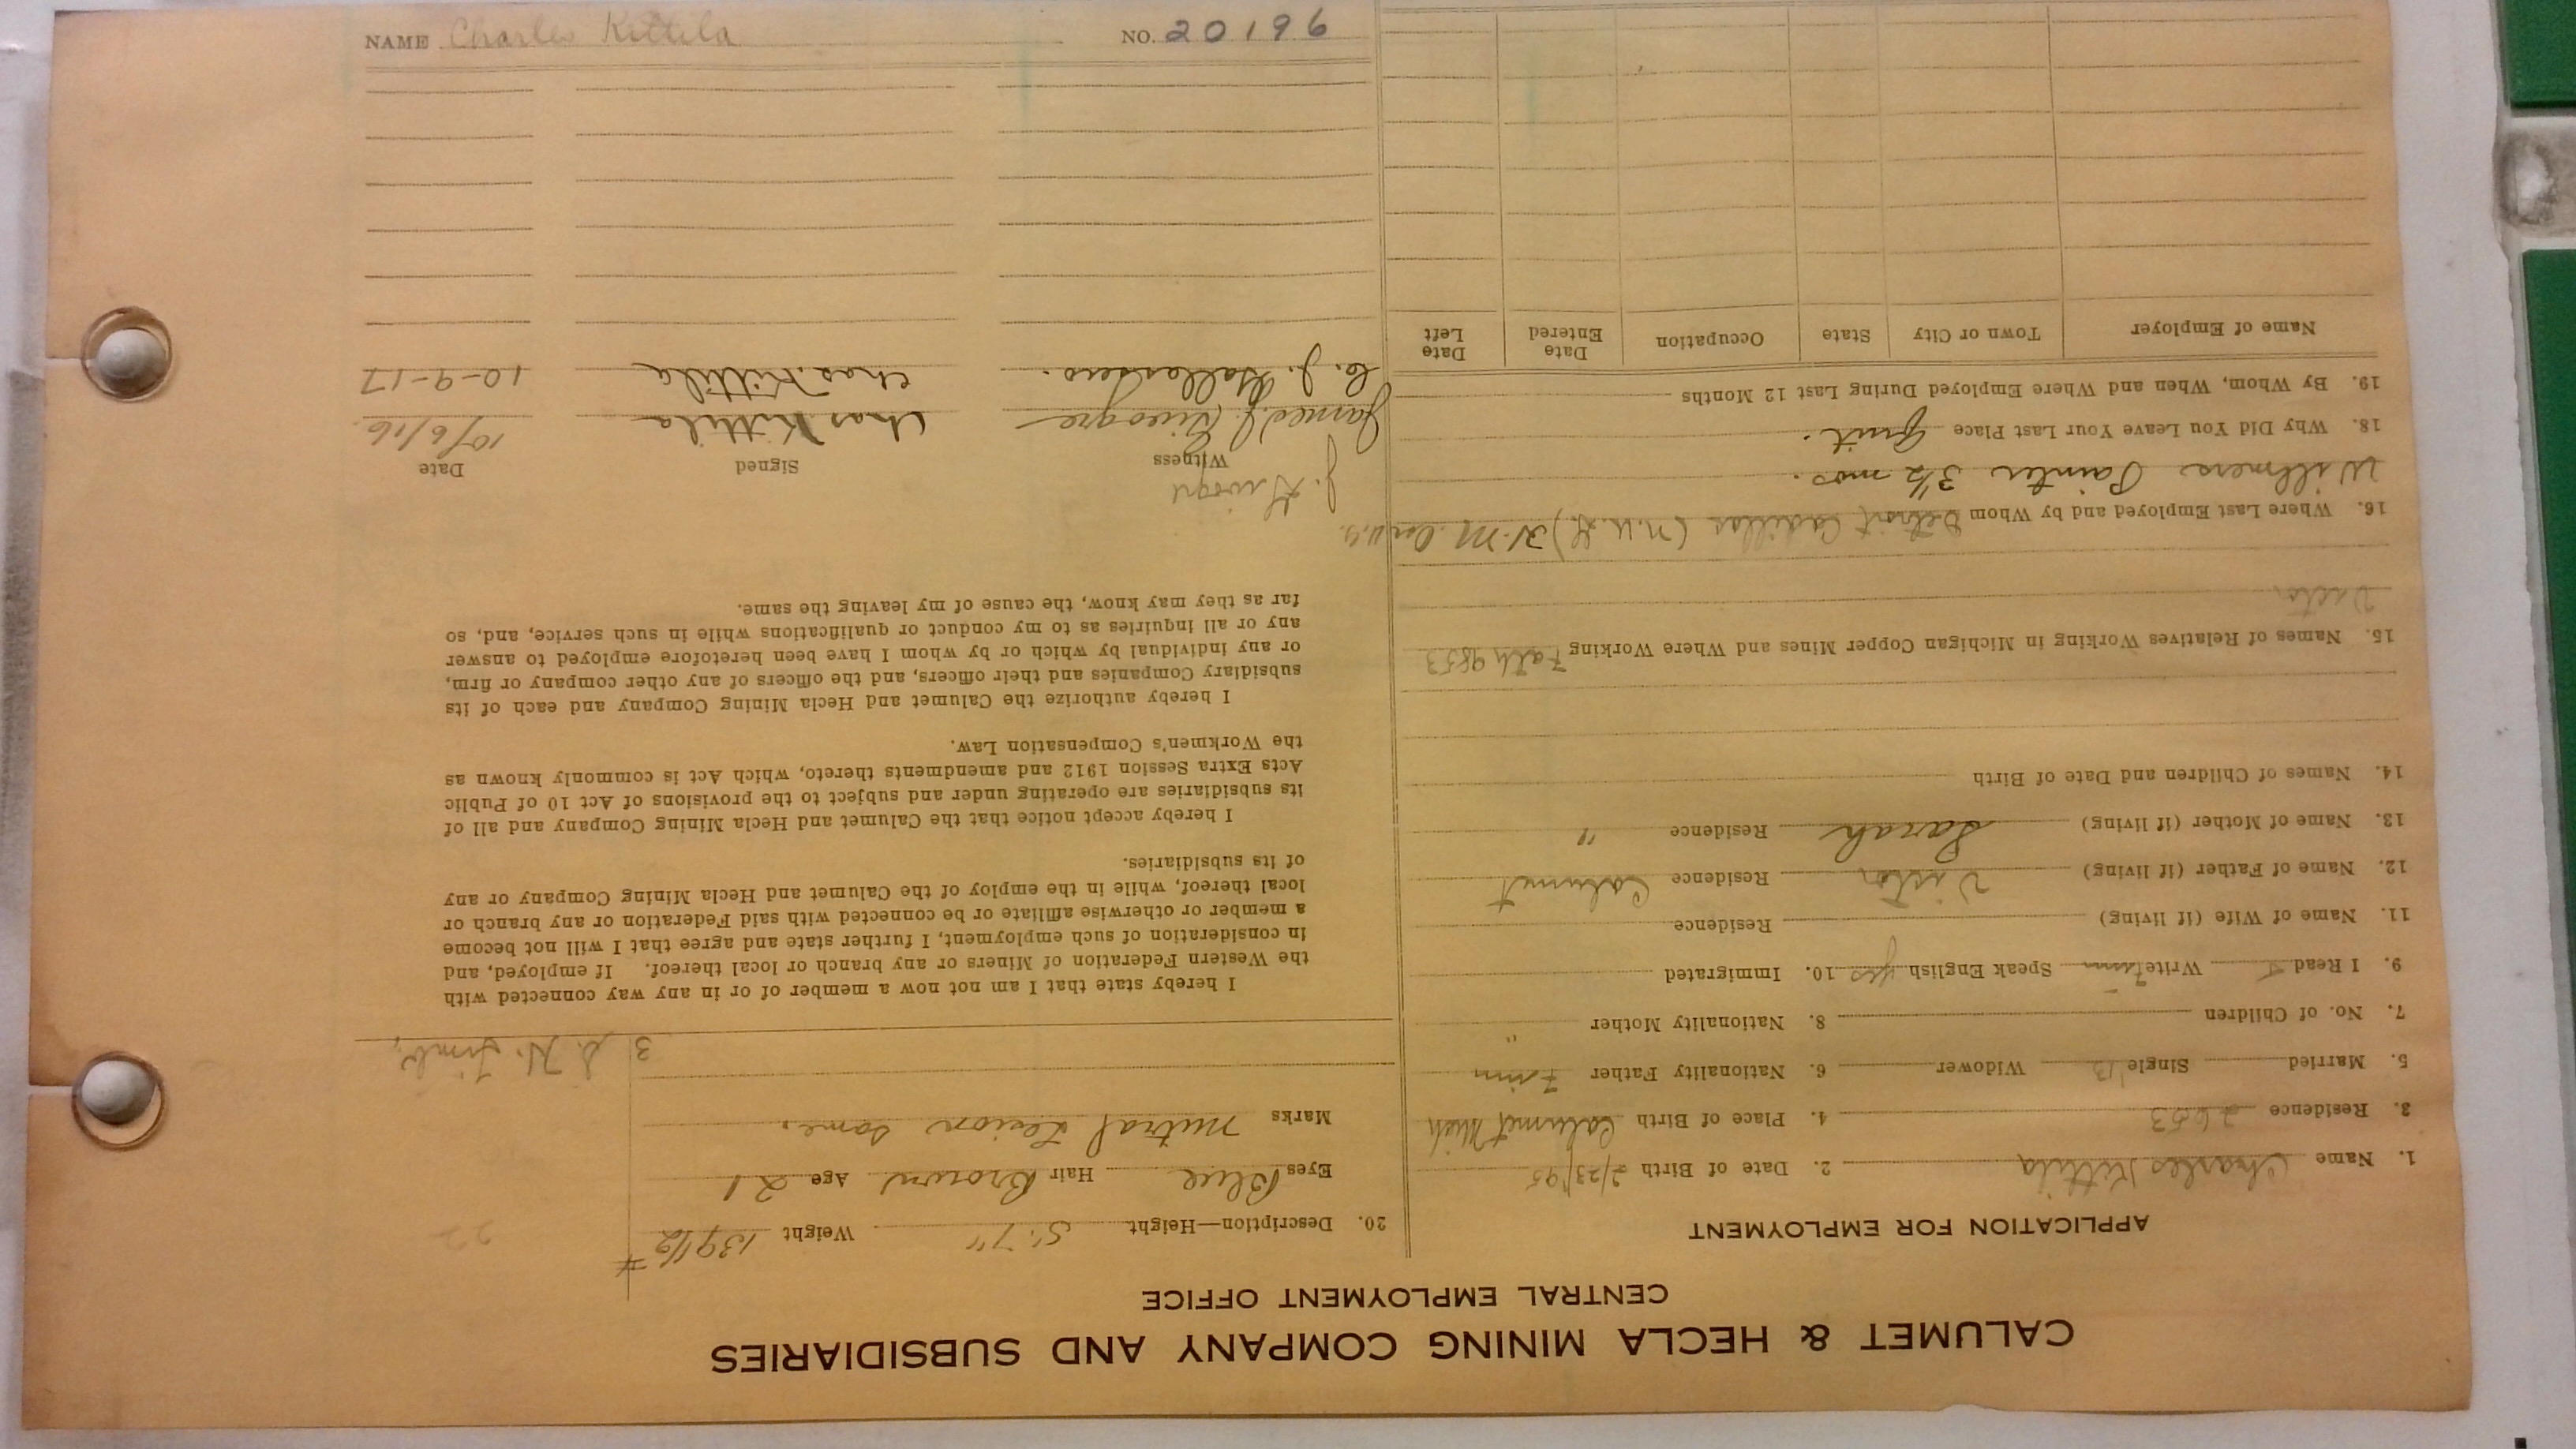 CALUMET & HECLA MINING COMPANY AND SUBSIDIARIES
CENTRAL EMPLOYMENT OFFICE
APPLICATION FOR EMPLOYMENT
1. Name Charles Kittila 2. Date of Birth 2/23/95
3. Residence 2653 4. Place of Birth Calumet Mich
5. Married Single Widower 6. Nationality Father Finn
7. No. of Children 8. Nationality Mother "
9. I Read Write Finn Speak English yes 10. Immigrated
11. Name of Wife (if living) Residence
12. Name of Father (if living) Victor Residence Calumet
13. Name of Mother (if living) Sarah Residence "
14. Names of Children and Date of Birth
15. Names of Relatives Working in Michigan Copper Mines and Where Working Fath 9853
Victor
16. Where Last Employed and by Whom Detroit Cadillac
Painter 3½ mos.
18. Why Did You Leave Your Last Place Quit.
19. By Whom, When and Where Employed During Last 12 Months
Name of Employer Town or City State Occupation Date Entered Date Left
20. Description—Height 5' 7" Weight 139 1/2 #
Eyes Blue Hair Brown Age 21
Marks Mitral Lesion Some.
22
3
I hereby state that I am not now a member of or in any way connected with
the Western Federation of Miners or any branch or local thereof. If employed, and
in consideration of such employment, I further state and agree that I will not become
a member or otherwise affiliate or be connected with said Federation or any branch or
local thereof, while in the employ of the Calumet and Hecla Mining Company or any
of its subsidiaries.
I hereby accept notice that the Calumet and Hecla Mining Company and all of
its subsidiaries are operating under and subject to the provisions of Act 10 of Public
Acts Extra Session 1912 and amendments thereto, which Act is commonly known as
the Workmen's Compensation Law.
I hereby authorize the Calumet and Hecla Mining Company and each of its
subsidiary Companies and their officers, and the officers of any other company or firm,
or any individual by which or by whom I have been heretofore employed to answer
any or all inquiries as to my conduct or qualifications while in such service, and, so
far as they may know, the cause of my leaving the same.
Witness Signed Date
James J. Chas Kittila 10/6/16
C. J. Chas. Kittila 10-9-17
NAME Charles Kittila NO. 20196